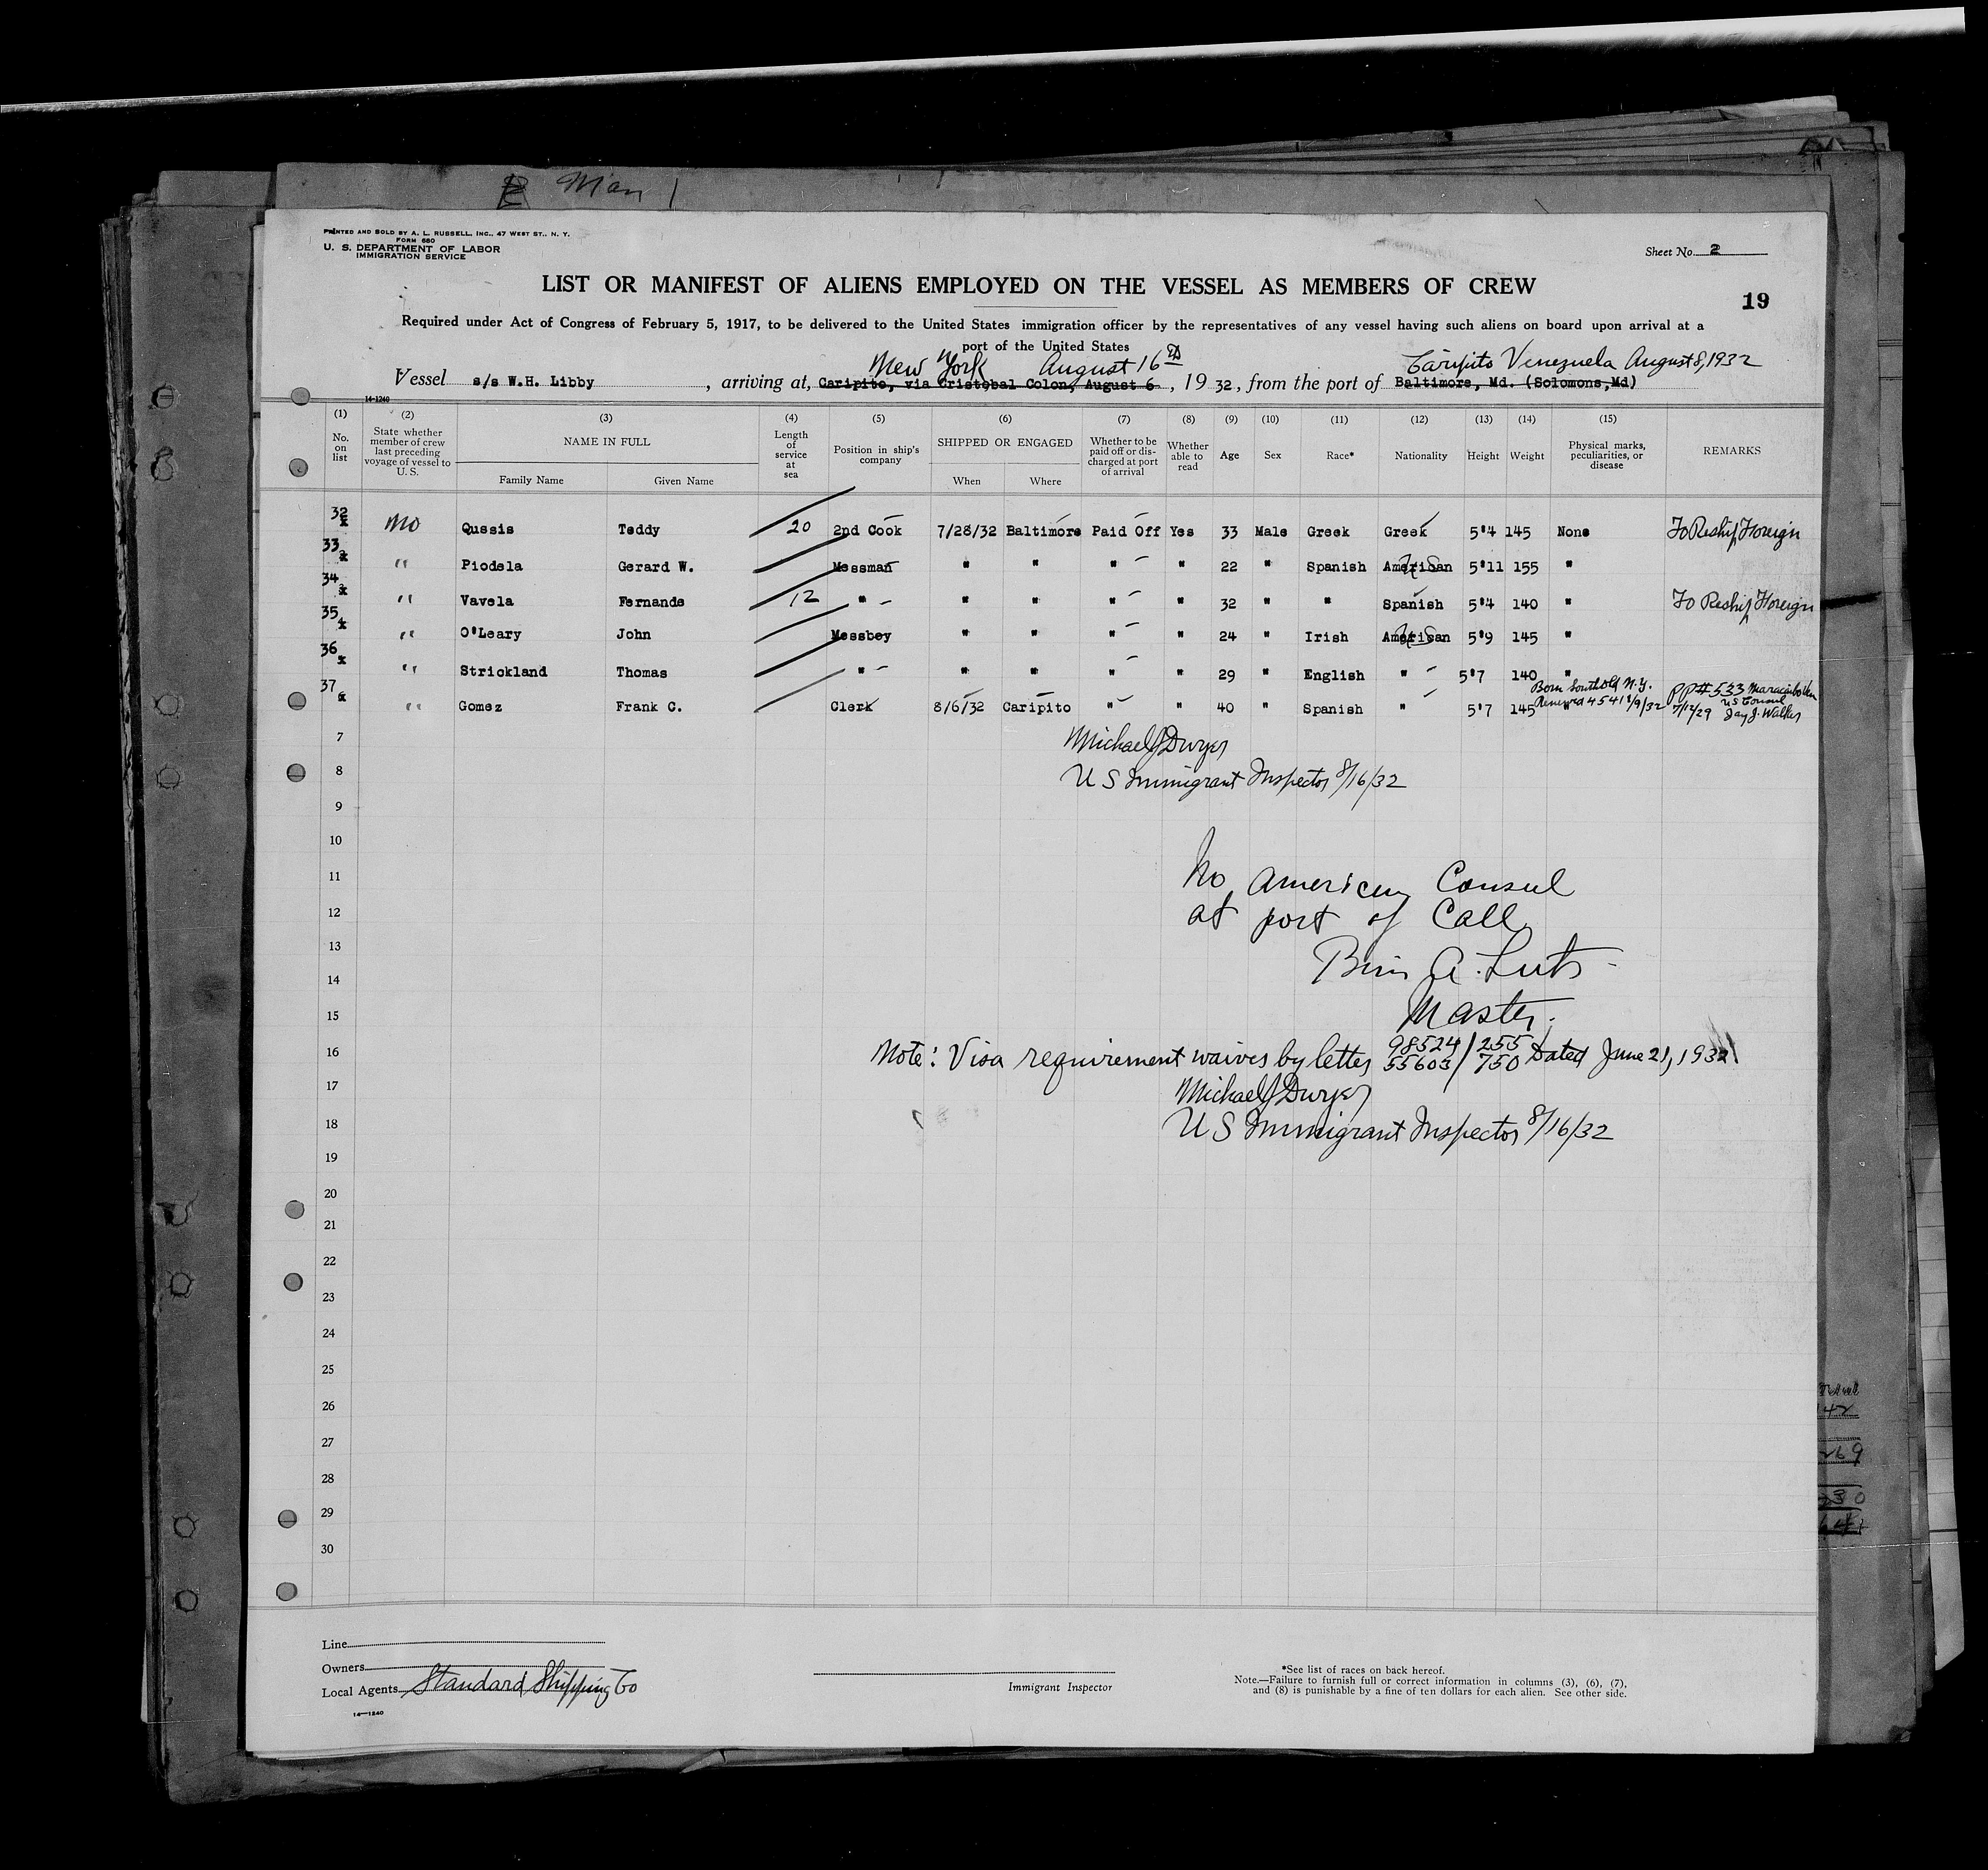 Man
PRINTED AND SOLD BY A. L. RUSSELL, INC., 47 WEST ST., N. Y.
FORM 680
U. S. DEPARTMENT OF LABOR
IMMIGRATION SERVICE
Sheet No. 2
LIST OR MANIFEST OF ALIENS EMPLOYED ON THE VESSEL AS MEMBERS OF CREW
19
Required under Act of Congress of February 5, 1917, to be delivered to the United States immigration officer by the representatives of any vessel having such aliens on board upon arrival at a
port of the United States
New York August 16th Caripito Venezuela August 8, 1932
Vessel s/s W.H. Libby, arriving at, Caripito, via Cristobal Colon, August 6, 19 32, from the port of Baltimore, Md. (Solomons, Md)
14-1240
(1) (2) (3) (4) (5) (6) (7) (8) (9) (10) (11) (12) (13) (14) (15)
No. on list State whether member of crew last preceding voyage of vessel to U. S. NAME IN FULL Length of service at sea Position in ship's company SHIPPED OR ENGAGED Whether to be paid off or discharged at port of arrival Whether able to read Age Sex Race* Nationality Height Weight Physical marks, peculiarities, or disease REMARKS
Family Name Given Name When Where
32 x No Qussis Teddy 20 2nd Cook 7/28/32 Baltimore Paid Off Yes 33 Male Greek Greek 5'4 145 None To Reship Foreign
33 x " Piodela Gerard W. Messman " " " " 22 " Spanish American US 5'11 155 "
34 x " Vavela Fernando 12 " " " " " 32 " " Spanish 5'4 140 " To Reship Foreign
35 x " O'Leary John Messboy " " " " 24 " Irish American US 5'9 145 "
36 x " Strickland Thomas " " " " " 29 " English " 5'7 140 "
37 x " Gomez Frank C. Clerk 8/6/32 Caripito " " 40 " Spanish " 5'7 145 Born Southold N.Y. Renewed 4541 PP# 533 Maracaibo Ven 7/12/29 US Consul Jay J. Walker
7 Michael J Dwyer
8 US Immigrant Inspector 8/16/32
9
10
11 No American Consul
12 at port of Call
13
14 A. Luts
15 Master.
16 Note: Visa requirement waives by letter 98524/255 55603/750 Dated June 21, 1932
17 Michael J Dwyer
18 US Immigrant Inspector 8/16/32
19
20
21
22
23
24
25
26
27
28
29
30
Line
Owners
Local Agents Standard Shipping Co
14—1240
Immigrant Inspector
*See list of races on back hereof.
Note.—Failure to furnish full or correct information in columns (3), (6), (7),
and (8) is punishable by a fine of ten dollars for each alien. See other side.